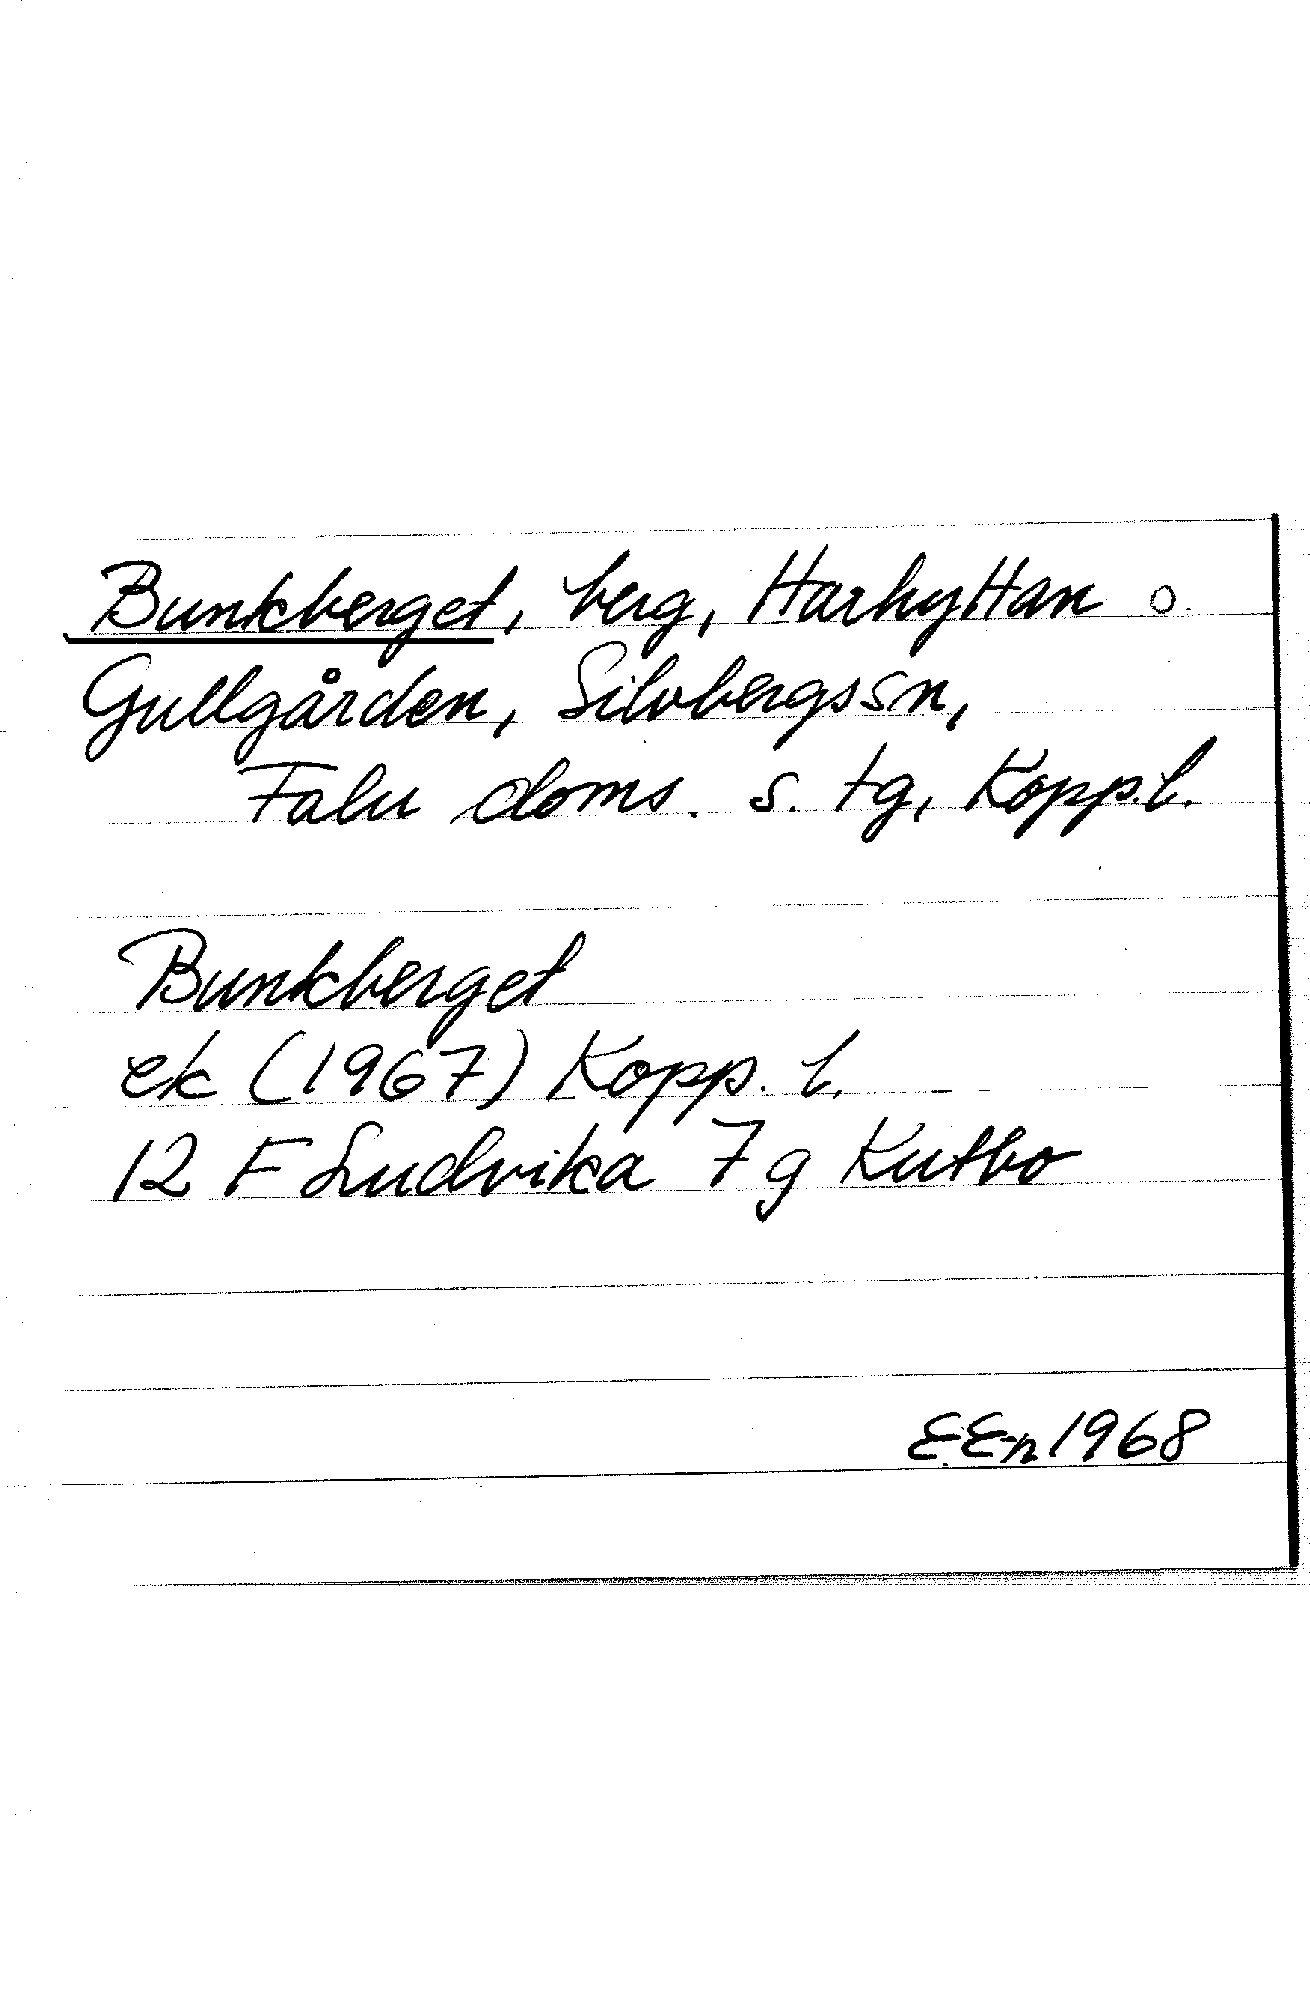 Bunkberget, berg, Harhyttan o.
Gullgården, Silvbergs sn,
Falu doms. s. tg, Kopp. l.
Bunkberget
ek (1967) Kopp. l.
12 F Ludvika 7 g Kutbo
E.En 1968